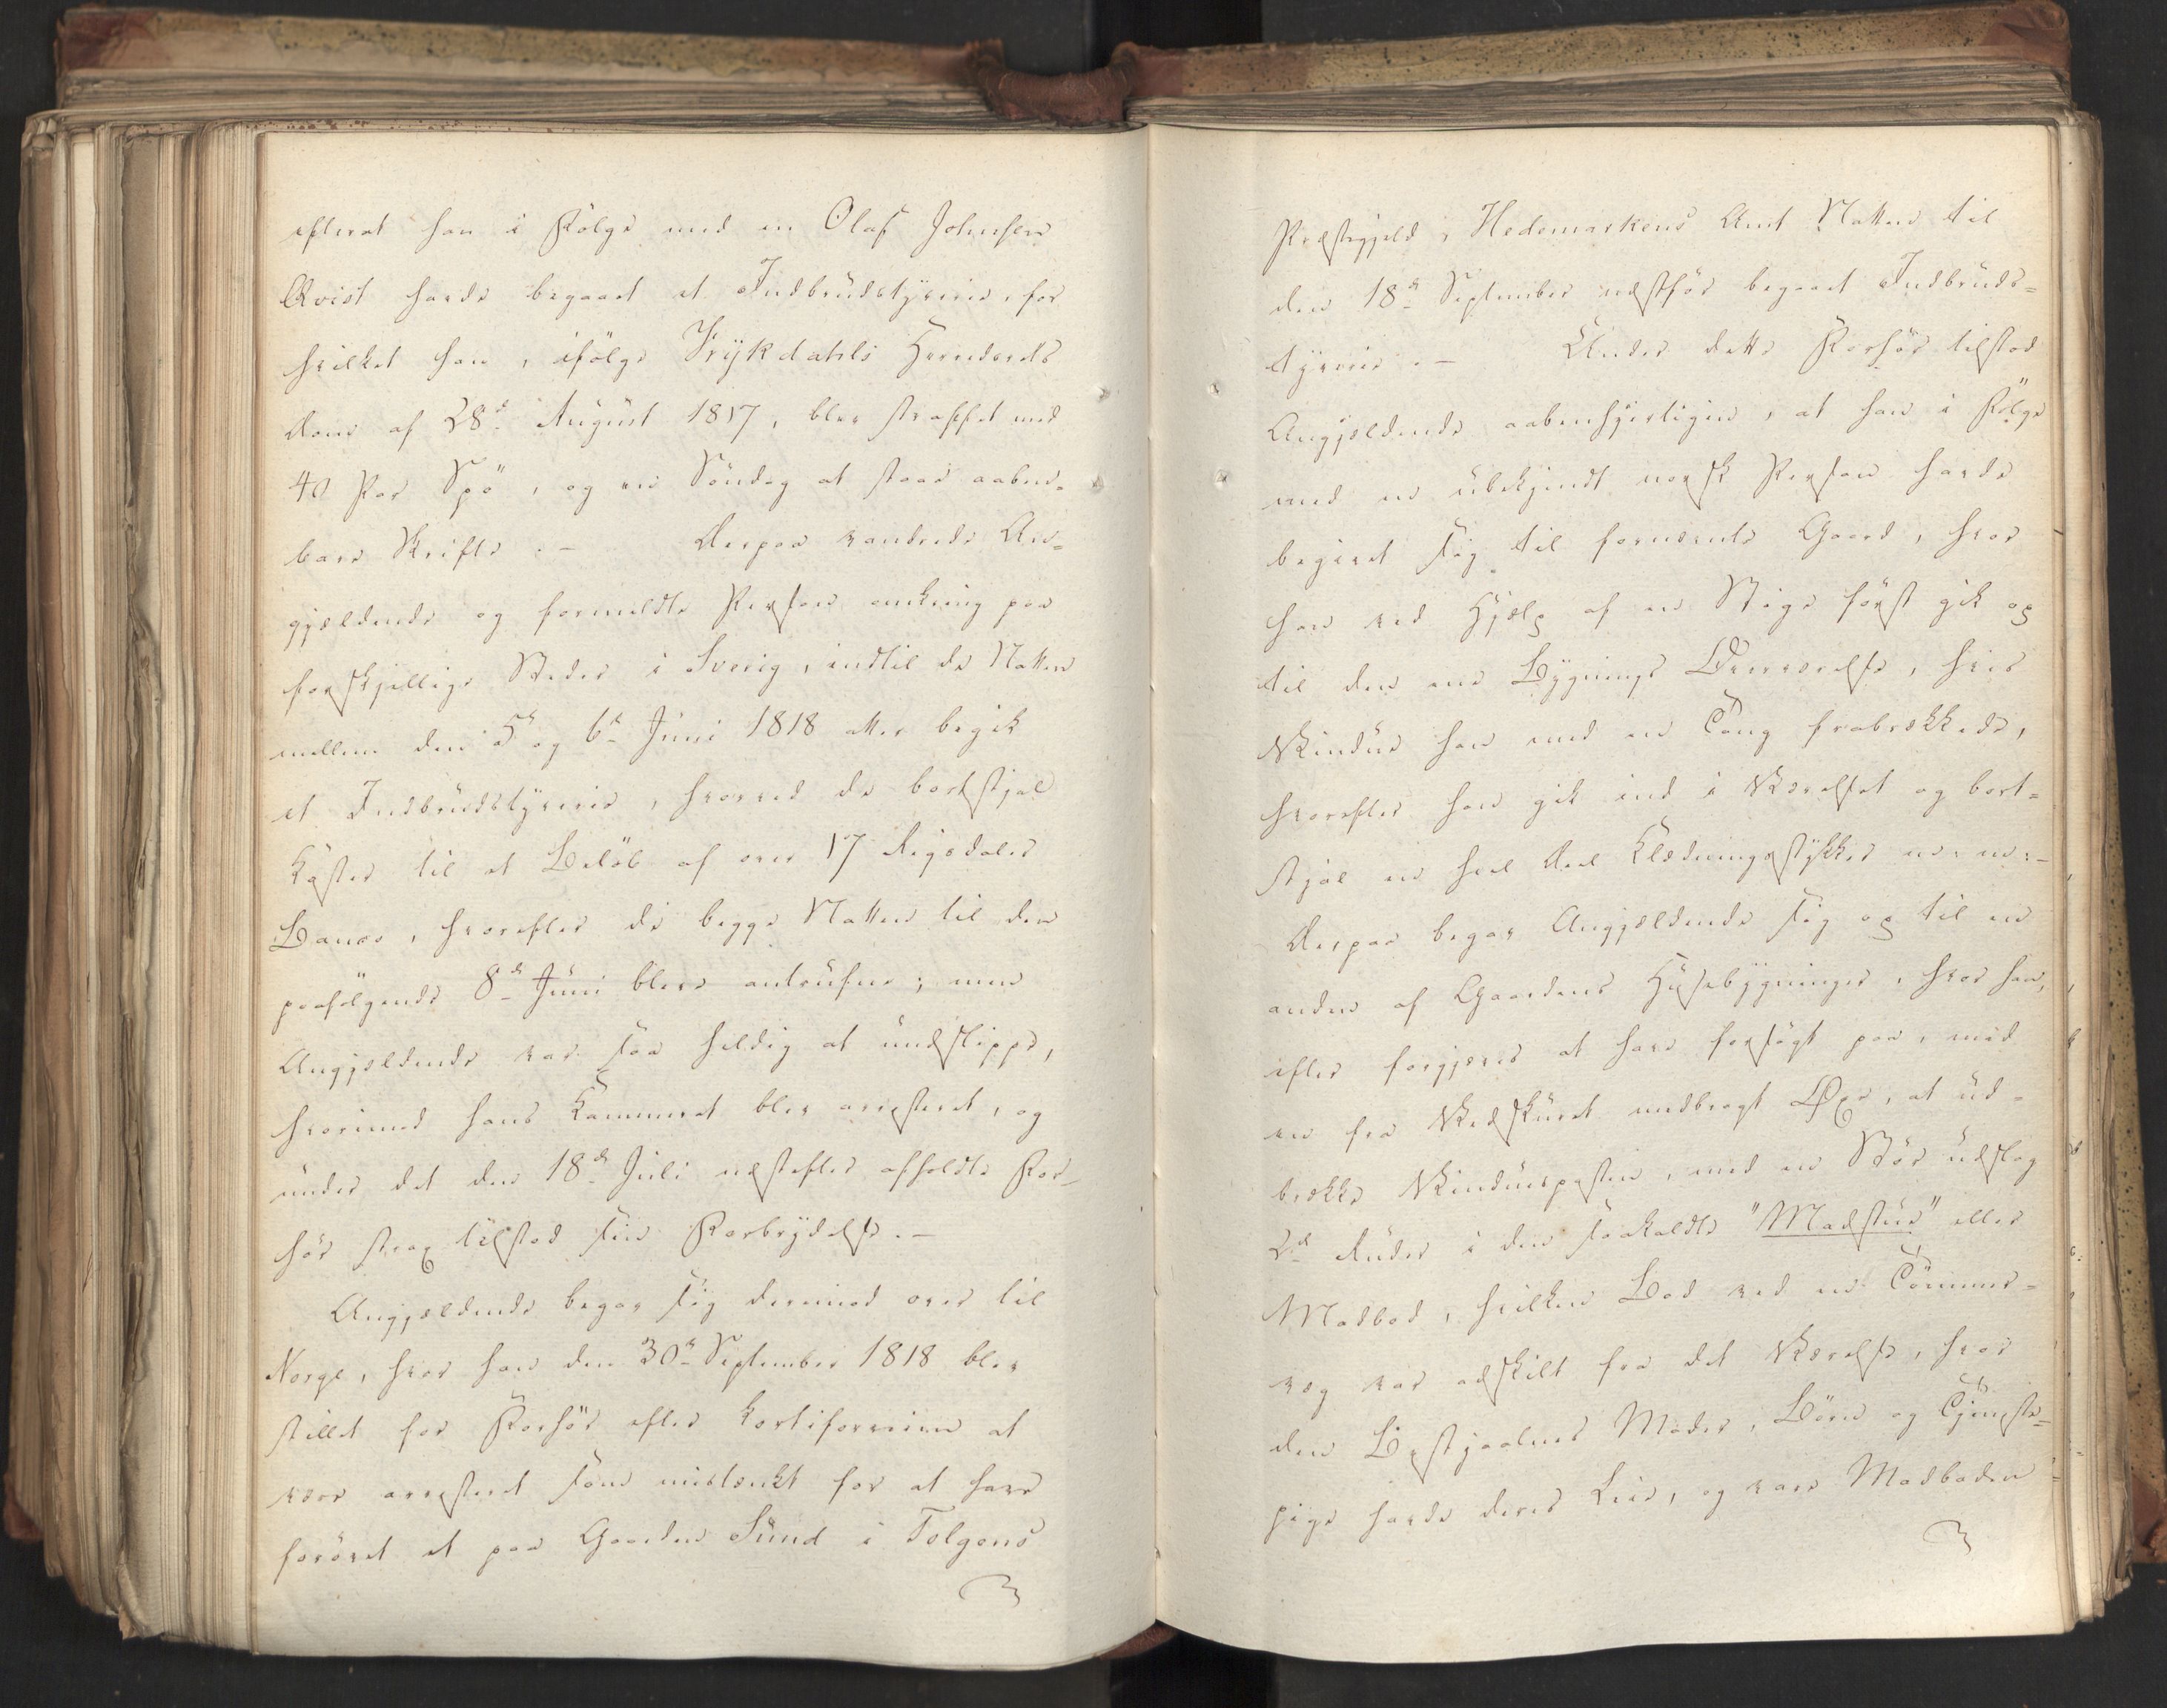 efterat han i Følge med en Olaf Johnsen
Qvist havde begaaet et Indbrudstyverie, for
hvilket han, ifølge Frykdahls Herreds
Dom af 28d August 1817, blev straffet med
40 Par Spö, og en Söndag at staae aaben-
bare Skrifte. – Derpaa vandrede An-
gjældende og formeldte Person omkring paa
forskjellige Steder i Sverig, indtil de Natten
mellem den 5 og 6te Juni 1818 atter begik
et Indbrudstyverie, hvorved de bortstjal
Koster til et Belöb af over 17 Rigsdaler
Banco, hvorefter de begge Natten til den
paafølgende 8de Juni bleve antrufne; men
Angjældende var saa heldig at undslippe,
hvorimod hans Kammerat blev arresteret, og
under det den 18de Juli næstefter afholdte For-
hör strax tilstod sin Forbrydelse. –
Angjældende begav sig derimod over til
Norge, hvor han den 30te September 1818 blev
stillet for Forhör efter hortiforveien at
være arresteret som mistænkt for at have
forövet et paa Gaarden Sund i Tolgens
Præstegjeld, Hedemarkens Amt Natten til
den 18de September nestför begaaet Indbruds-
tyverie. – Under dette Forhör tilstod
Angjældende aabenhjertigen, at han i Følge
med en ubekjendt norsk Person havde
begivet sig til fornævnte Gaard, hvor
han ved Hjælp af en Stige först gik op
til den ene Bygnings Overværelse, hvis
Vindue han med en Tang frabrækkede,
hvorefter han gik ind i Værelset og bort-
stjal en heel Deel Klædningsstykker m: m: –
Derpaa begav Angjældende sig op til en
anden af Gaardens Husebygninger, hvor han,
efter forgjæves at have forsögt paa, med
en fra Vedskuret medbragt Öxe, at ud-
brække Vinduesposten, med en Stör udslog
2de Ruder i den saakaldte "Madstue" eller
Madbod, hvilken Bod ved en Tömmer-
væg var adskilt fra det Værelse, hvor
den Bestjaalnes Moder, Börn og Tjeneste-
pige havde deres Leie, og vare Madboden